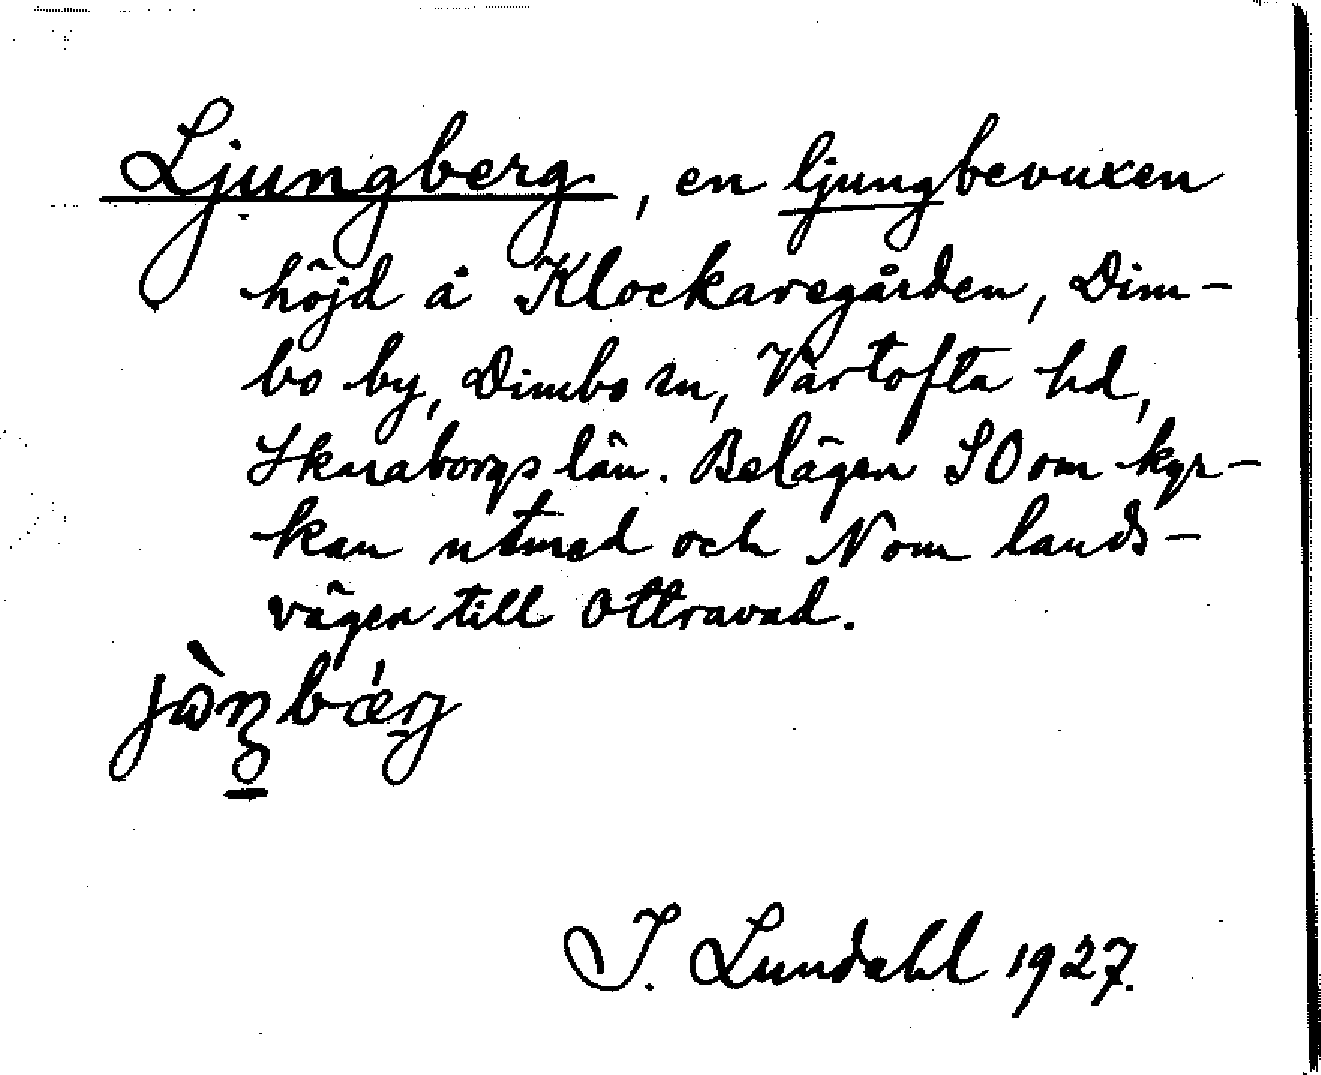 Ljungberg, en ljungbevuxen
höjd å Klockaregården, Dim-
bo by, Dimbo sn, Vartofta hd,
Skaraborgs län. Belägen SO om kyr-
kan utmed och N om lands-
vägen till Ottravad.
J. Lundahl 1927.